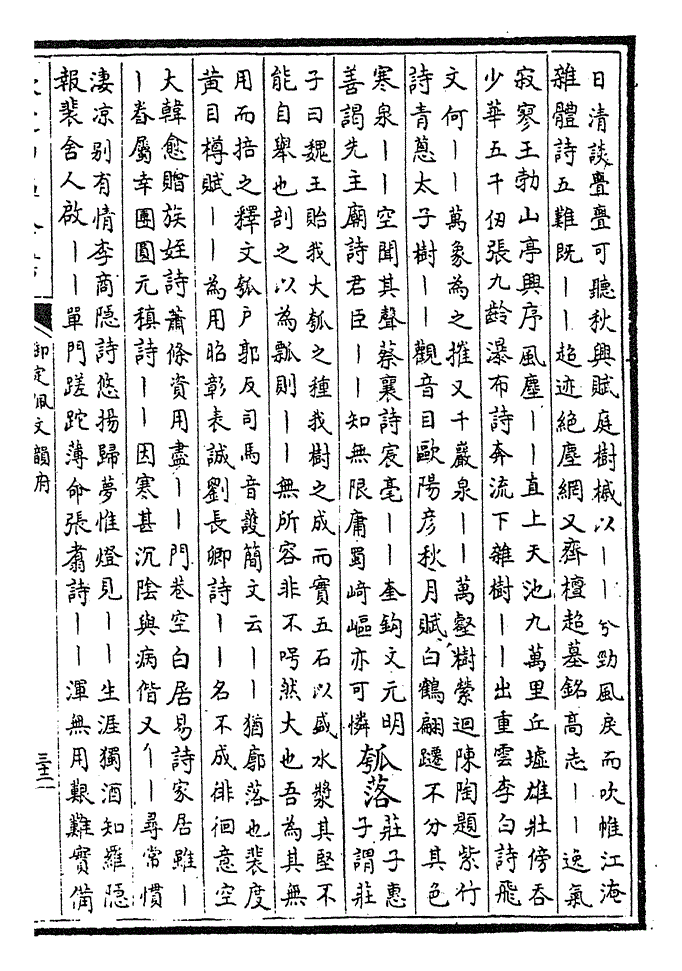 日清談亹亹可聽秋興賦庭樹槭以丨丨兮勁風戾而吹帷江淹
雜體詩五難既丨丨超迹絕塵網又齊檀超墓銘高志丨丨逸氣
寂寥王勃山亭興序風塵丨丨直上天池九萬里丘墟雄壯傍吞
少華五千仞張九齡瀑布詩奔流下雜樹丨丨出重雲李白詩飛
文何丨丨萬象為之摧又千巖泉丨丨萬壑樹縈迴陳陶題紫竹
詩青蔥太子樹丨丨觀音目歐陽彦秋月賦白鶴翩躚不分其色
寒泉丨丨空聞其聲蔡襄詩宸毫丨丨奎鈎文元明
善謁先主廟詩君臣丨丨知無限庸蜀崎嶇亦可憐
瓠落
莊子惠
子謂莊
子曰魏王貽我大瓠之種我樹之成而實五石以盛水漿其堅不
能自舉也剖之以為瓢則丨丨無所容非不呺然大也吾為其無
用而掊之釋文瓠户郭反司馬音護簡文云丨丨猶廓落也裴度
黃目樽賦丨丨為用昭彰表誠劉長卿詩丨丨名不成徘徊意空
大韓愈贈族姪詩蕭條資用盡丨丨門巷空白居易詩家居雖丨
丨眷屬幸團圓元稹詩丨丨因寒甚沉陰與病偕又丨丨尋常慣
淒凉别有情李商隱詩悠揚歸夢惟燈見丨丨生涯獨酒知羅隱
報裴舍人啟丨丨單門蹉跎薄命張翥詩丨丨渾無用艱難實備
御定佩文韻府